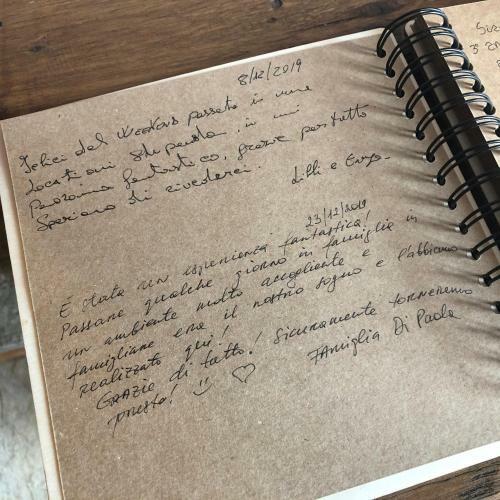 8/12/2019
Felici del weekend passato in una
location stupenda, in un
Panorama fantastico, grazie per tutto
Speriamo di rivederci.
Lilli e Enzo-
23/12/2019
È stata un'esperienza fantastica!
Passare qualche giorno in famiglia in
un ambiente molto accogliente e
famigliare era il nostro sogno e l'abbiamo
realizzato qui!
GRAZIE di tutto! Sicuramente torneremo
presto! ☺ ♡
FAMIGLIA Di Paola